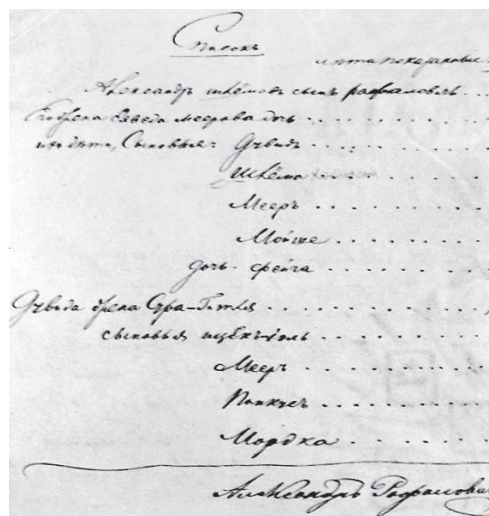 Списокъ
лѣта показанные
Александръ шлёмовъ сынъ рафаловъ
Жена Сёведа меерова дочь
ихъ дѣти, Сыновья Дувидъ
Шлёма
Мееръ
Мойше
дочь фейга
Дувида жена Сура-Гитля
сыновья
Мееръ
Пинкусъ
Мордка
Александръ Рафаловичъ